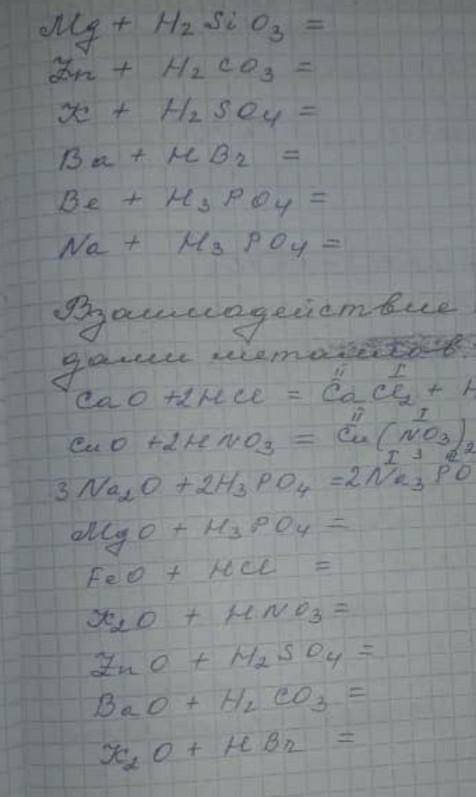 Mg + H₂SiO₃ =
Zn + H₂CO₃ =
K + H₂SO₄ =
Ba + HBr =
Be + H₃PO₄ =
Na + H₃PO₄ =
Взаимодействие
дами металлов.
CaO + 2HCl = CaCl₂ + H
II I
CuO + 2HNO₃ = Cu(NO₃)₂
II I
3Na₂O + 2H₃PO₄ = 2Na₃PO
I
MgO + H₃PO₄ =
FeO + HCl =
K₂O + HNO₃ =
ZnO + H₂SO₄ =
BaO + H₂CO₃ =
K₂O + HBr =